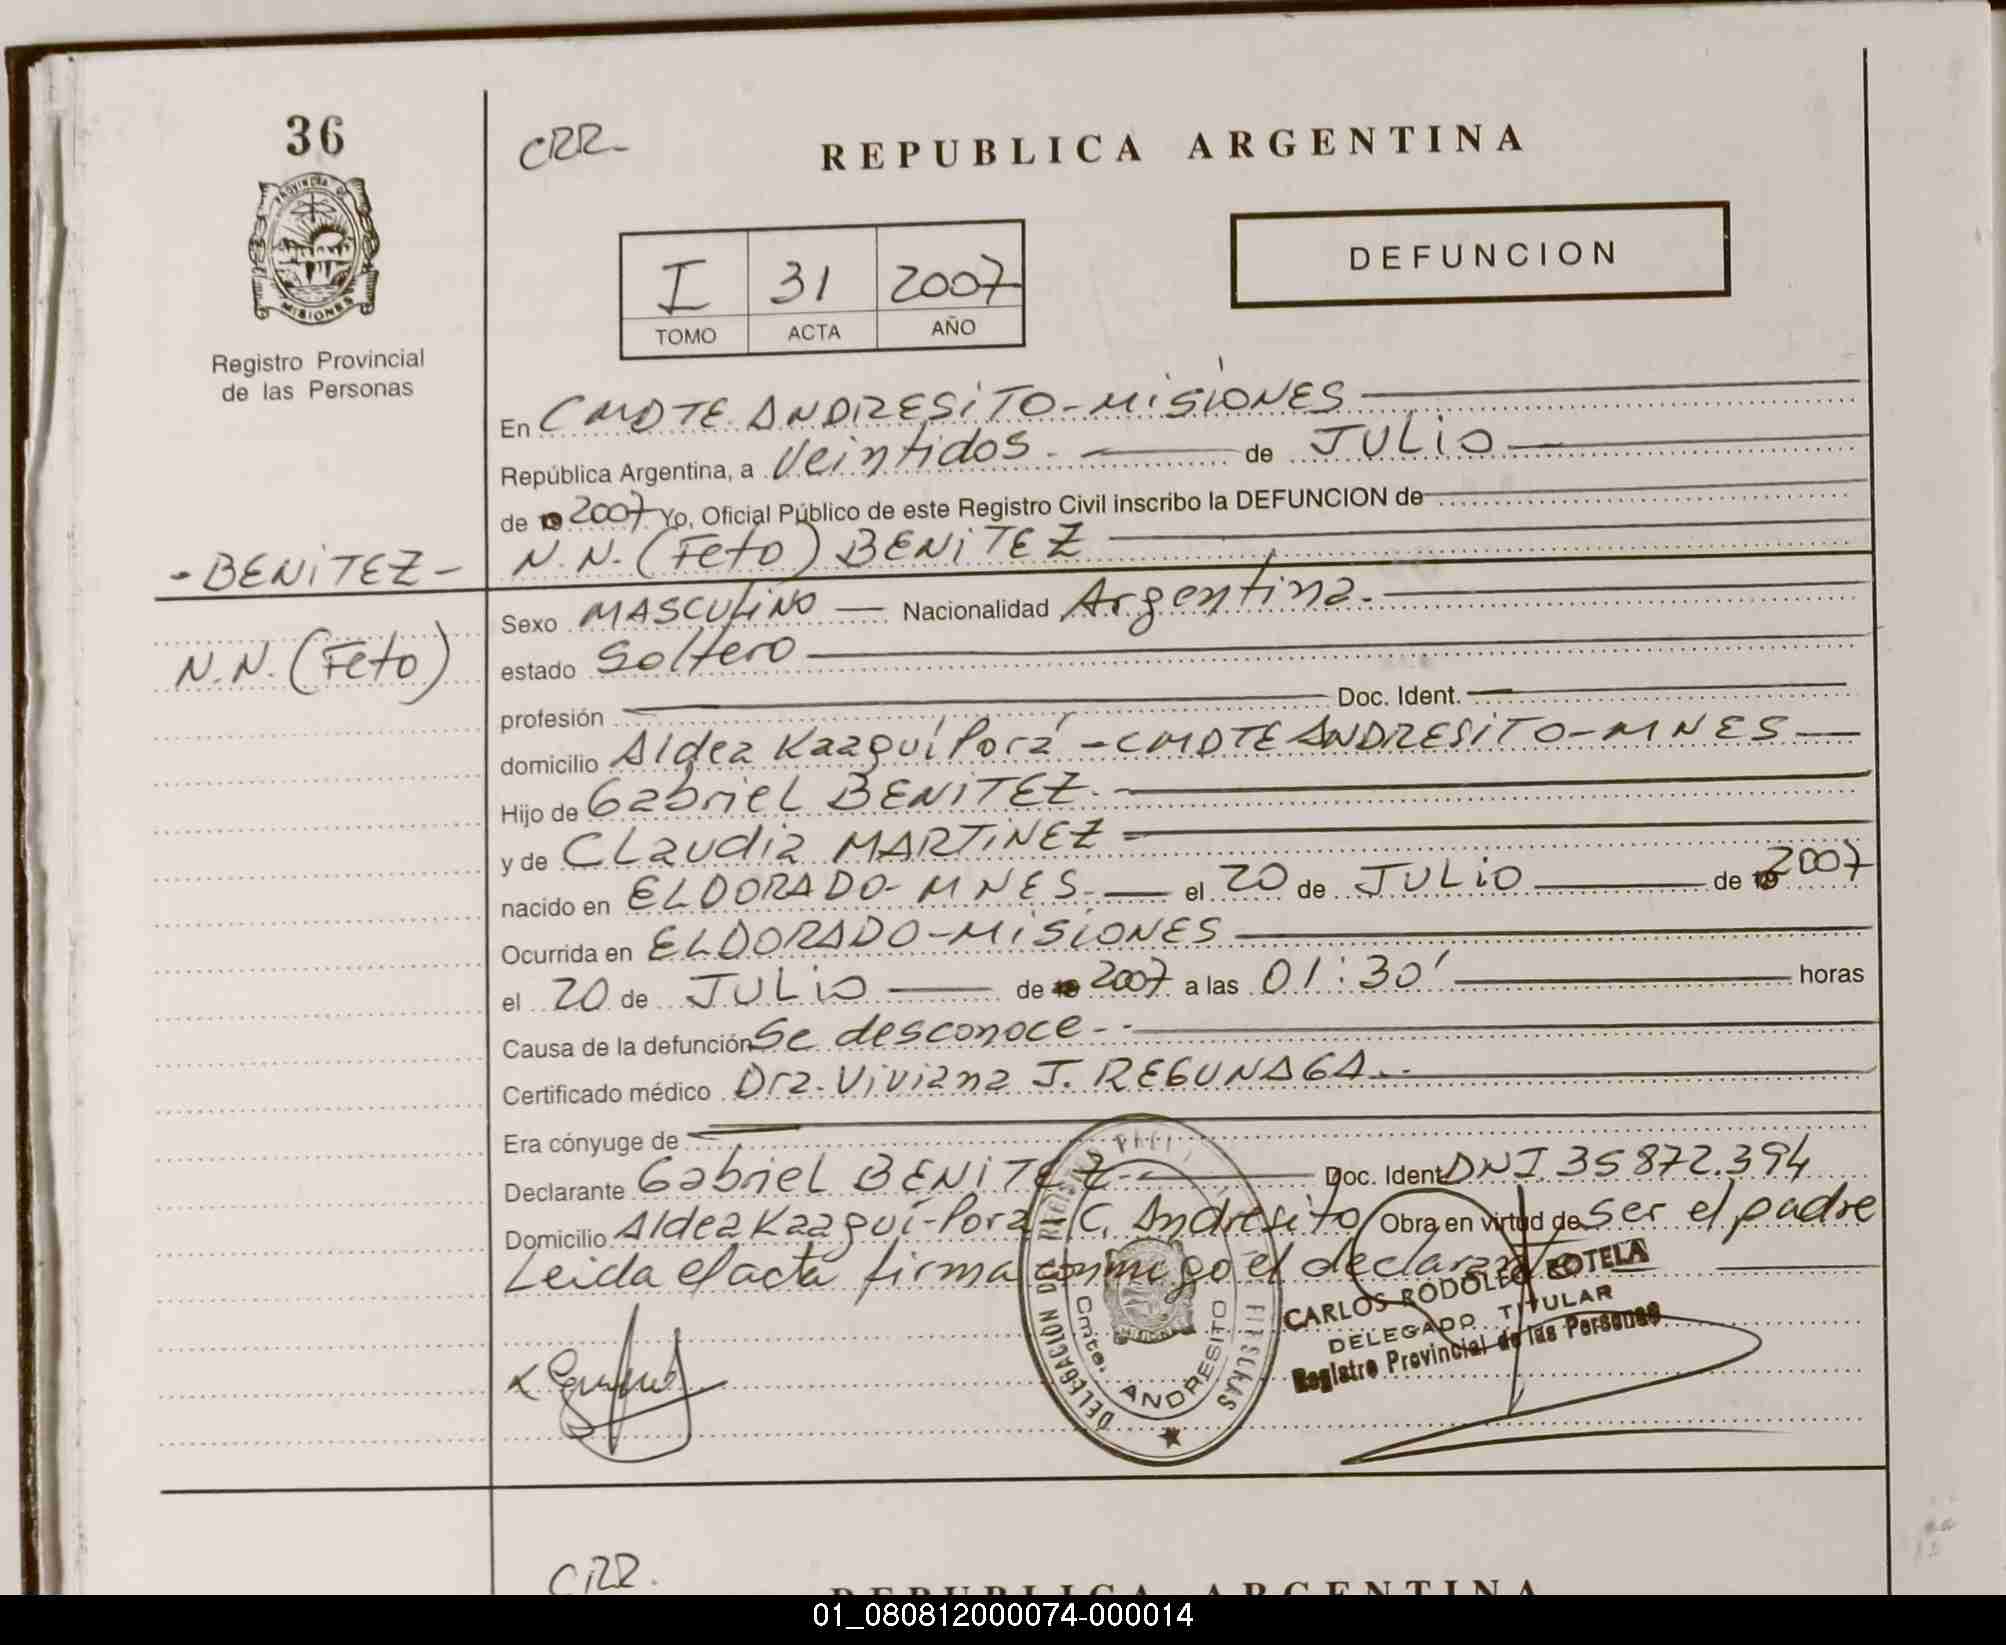 36
CRR
REPUBLICA ARGENTINA
PROVINCIA DE
MISIONES
Registro Provincial
de las Personas
I 31 2007
TOMO ACTA AÑO
DEFUNCION
En CMDTE ANDRESITO-MISIONES
República Argentina, a Veintidos. de JULIO
de 2007 Yo, Oficial Público de este Registro Civil inscribo la DEFUNCION de
- BENITEZ -
N.N. (Feto) BENITEZ
Sexo MASCULINO Nacionalidad Argentina.
N.N. (Feto)
estado Soltero
profesión Doc. Ident.
domicilio Aldea Kaaguí Porá - CMDTE ANDRESITO-MNES
Hijo de Gabriel BENITEZ.
y de CLaudia MARTINEZ
nacido en ELDORADO-MNES. el 20 de JULIO de 2007
Ocurrida en ELDORADO-MISIONES
el 20 de JULIO de 2007 a las 01:30' horas
Causa de la defunción Se desconoce
Certificado médico Dra. Viviana J. REGUNAGA
Era cónyuge de
Declarante Gabriel BENITEZ Doc. Ident DNI 35872.394
Domicilio Aldea Kaaguí-Porá C. Andresito Obra en virtud de ser el padre
Leida el acta firma conmigo el declarante
CARLOS RODOLFO ROTELA
DELEGADO TITULAR
Registro Provincial de las Personas
DELEGACION DEL
Cmte. ANDRESITO
CRR.
REPUBLICA ARGENTINA
01_080812000074-000014